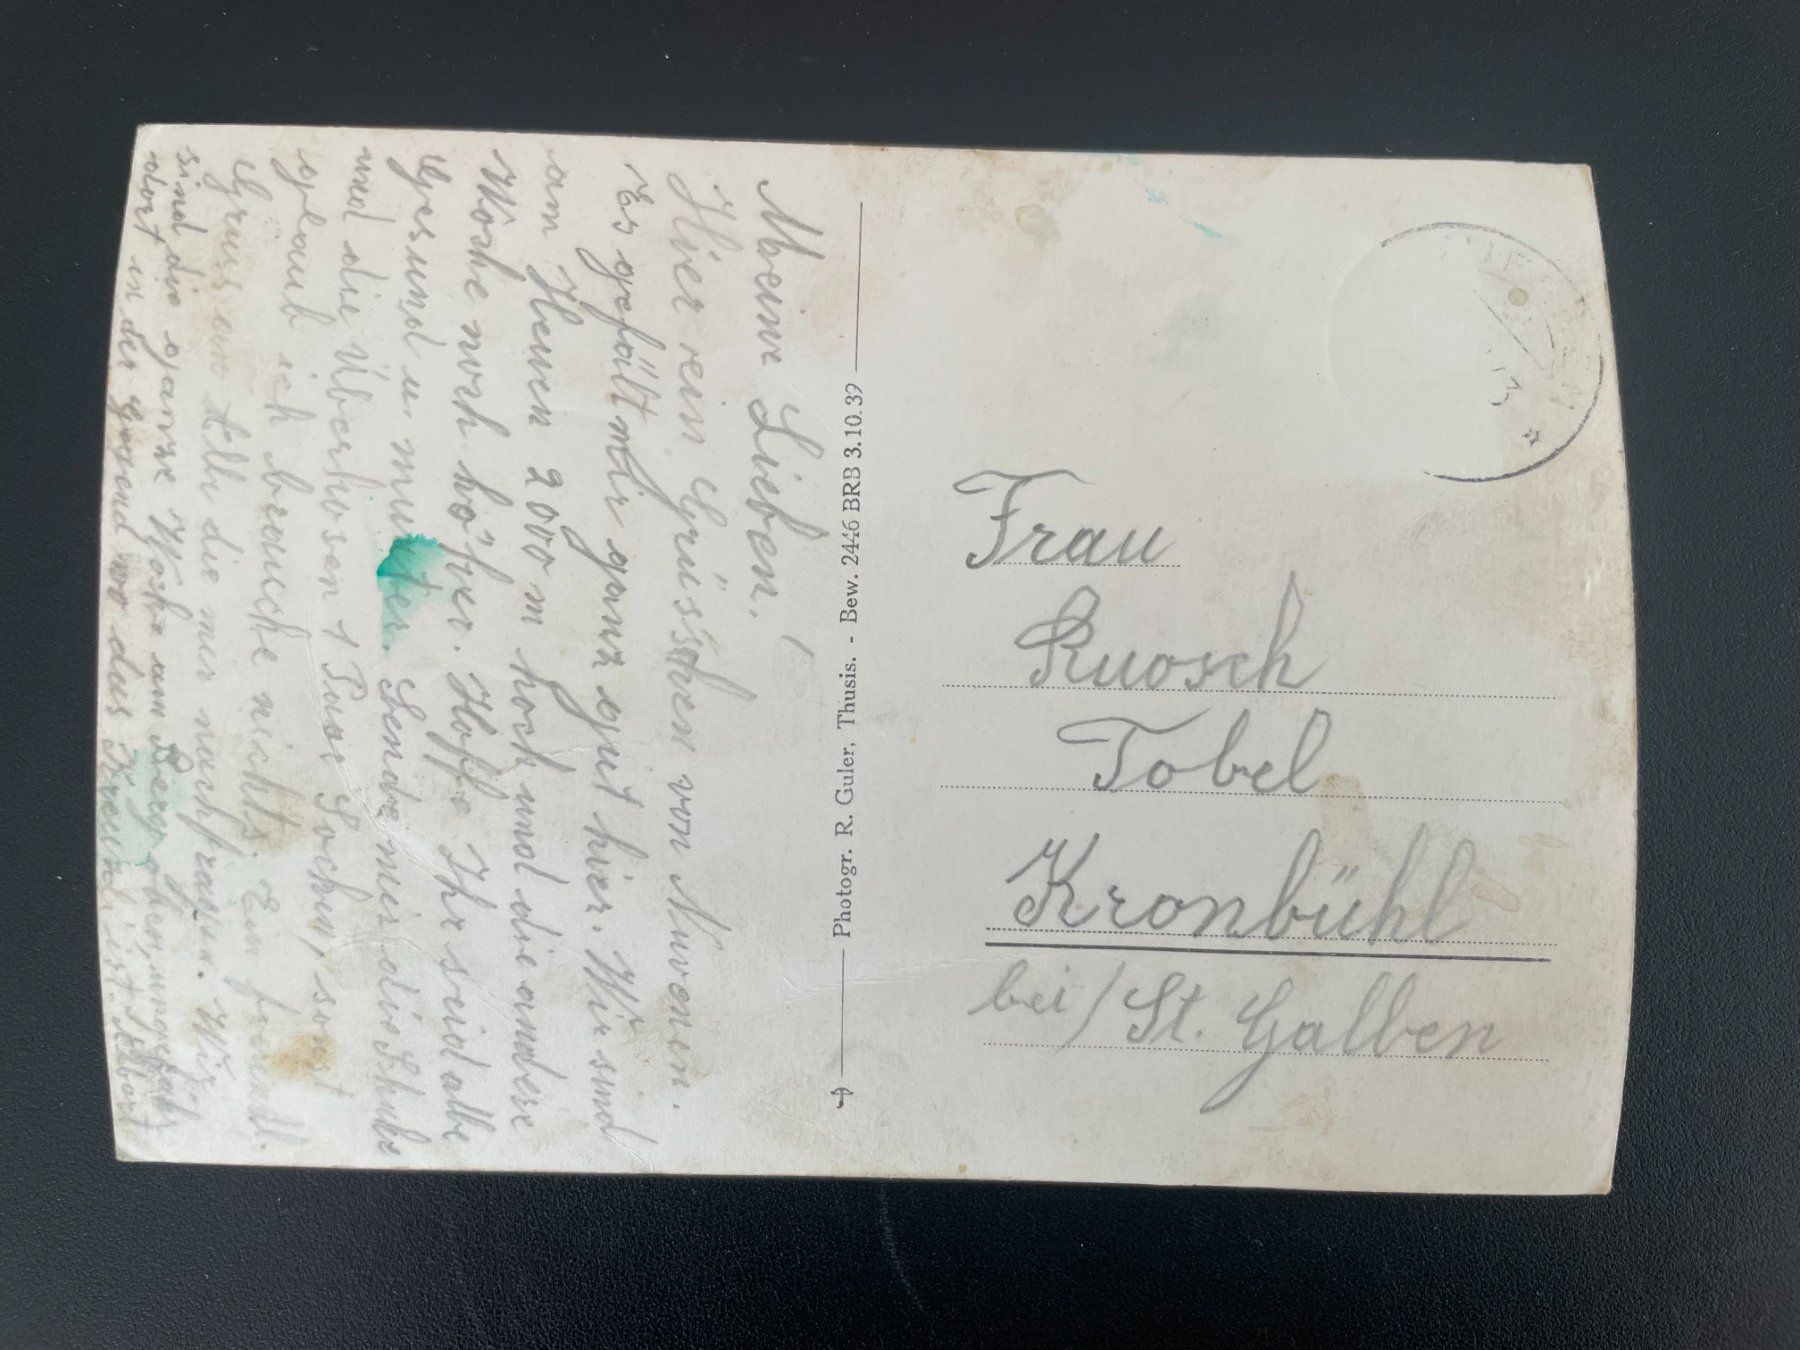 Meine Lieben!
Hier ein Grüsschen von Nuvenen.
Es gefält mir ganz gut hier. Wir sind
am Heuen 2000 m hoch und die andere
Woche noch höher. Hoffe Ihr seid alle
Gesund u. munter. Sende mir die Schuhe
und die Überhosen 1 Paar Socken, sonst
glaub ich brauche nichts. Ein freundl.
Gruss an Alle die mir nachfragen. Wir
sind die ganze Woche am Berg oben, ungefähr
dort in der Gegend wo das Kreuzli ist. Albert
Photogr. R. Guler, Thusis. - Bew. 2446 BRB 3.10.39
Frau
Ruosch
Tobel
Kronbühl
bei / St. Gallen